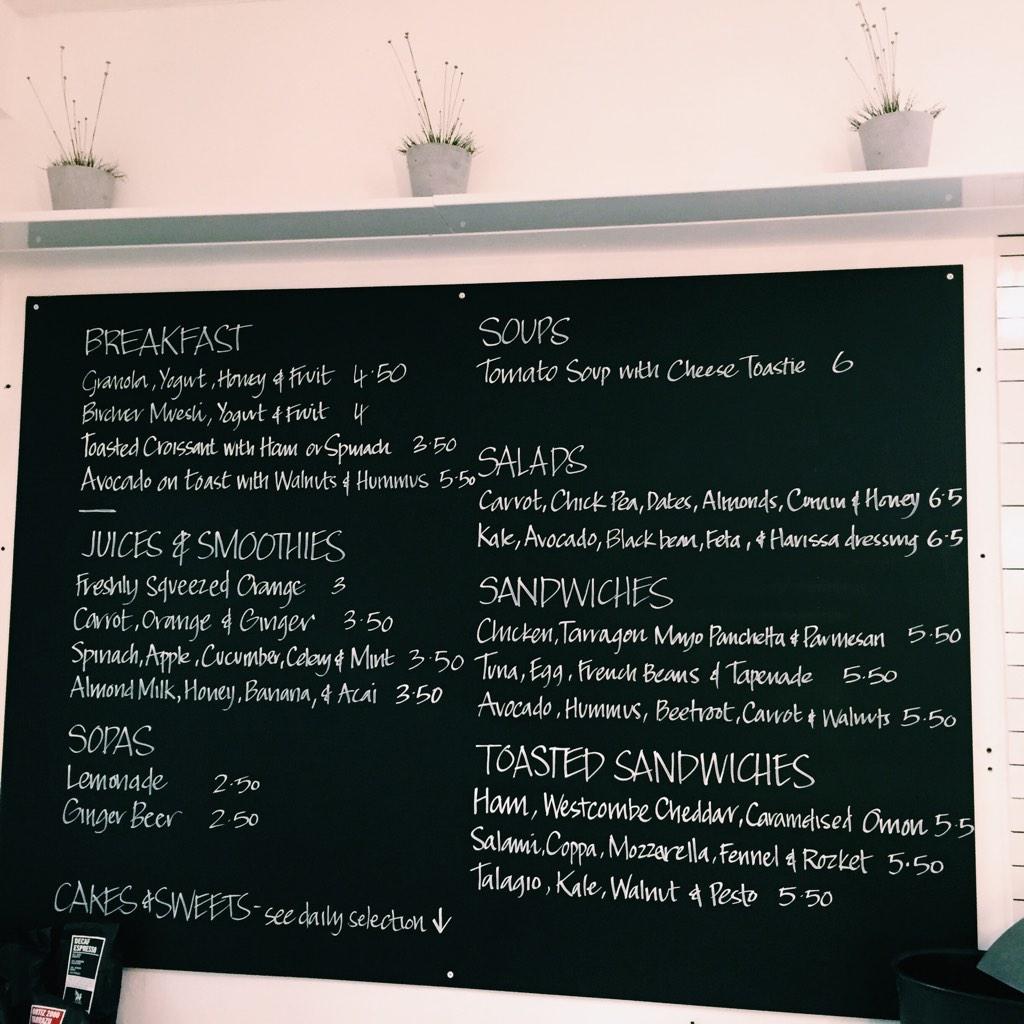 BREAKFAST
Granola, Yogurt, Honey & Fruit 4.50
Bircher Muesli, Yogurt & Fruit 4
Toasted Croissant with Ham or Spinach 3.50
Avocado on toast with Walnuts & Hummus 5.50
JUICES & SMOOTHIES
Freshly Squeezed Orange 3
Carrot, Orange & Ginger 3.50
Spinach, Apple, Cucumber, Celery & Mint 3.50
Almond Milk, Honey, Banana, & Acai 3.50
SODAS
Lemonade 2.50
Ginger Beer 2.50
CAKES & SWEETS - see daily selection ↓
SOUPS
Tomato Soup with Cheese Toastie 6
SALADS
Carrot, Chick Pea, Dates, Almonds, Cumin & Honey 6.5
Kale, Avocado, Black bean, Feta, & Harissa dressing 6.5
SANDWICHES
Chicken, Tarragon Mayo Panchetta & Parmesan 5.50
Tuna, Egg, French Beans & Tapenade 5.50
Avocado, Hummus, Beetroot, Carrot & Walnuts 5.50
TOASTED SANDWICHES
Ham, Westcombe Cheddar, Caramelised Onion 5.5
Salami, Coppa, Mozzarella, Fennel & Rocket 5.50
Talagio, Kale, Walnut & Pesto 5.50
DECAF
ESPRESSO
ORTIZ 2000
TARRAZU